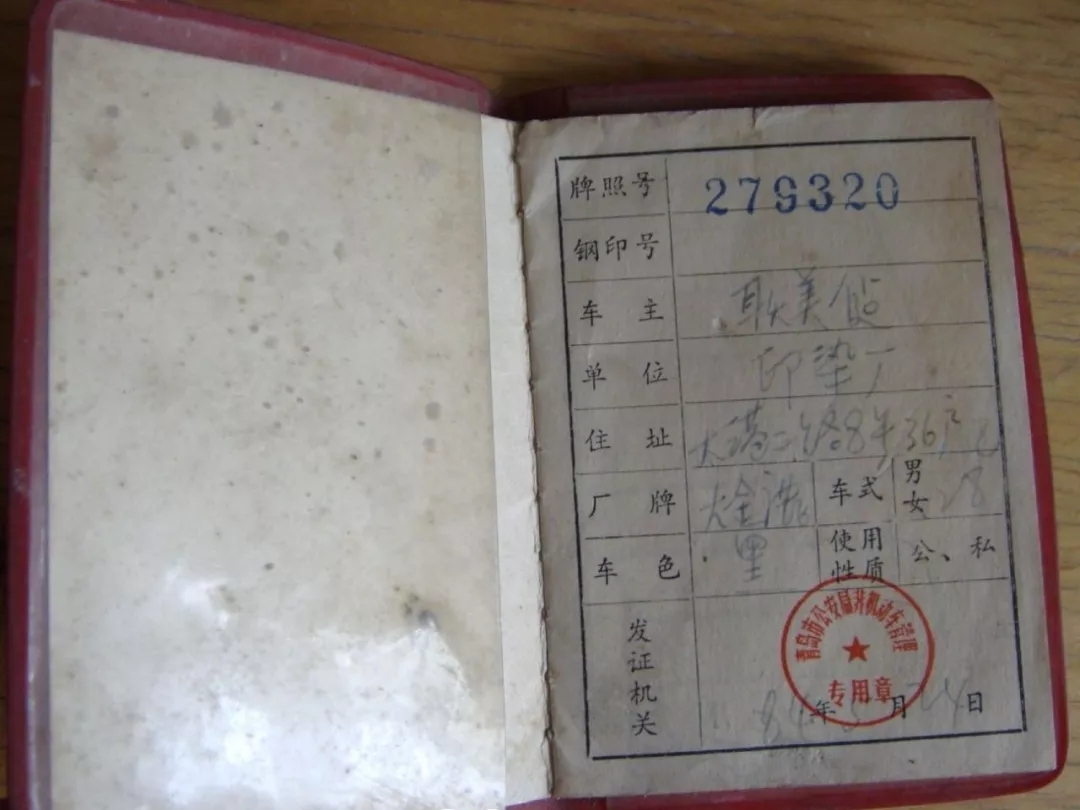 牌照号 279320
钢印号
车主 耿美俭
单位 印染厂
住址 大港二路8号36户
厂牌 大金鹿 车式 男 女 28
车色 黑 使用性质 公、私
发证机关
青岛市公安局非机动车管理
专用章
84年 月24日